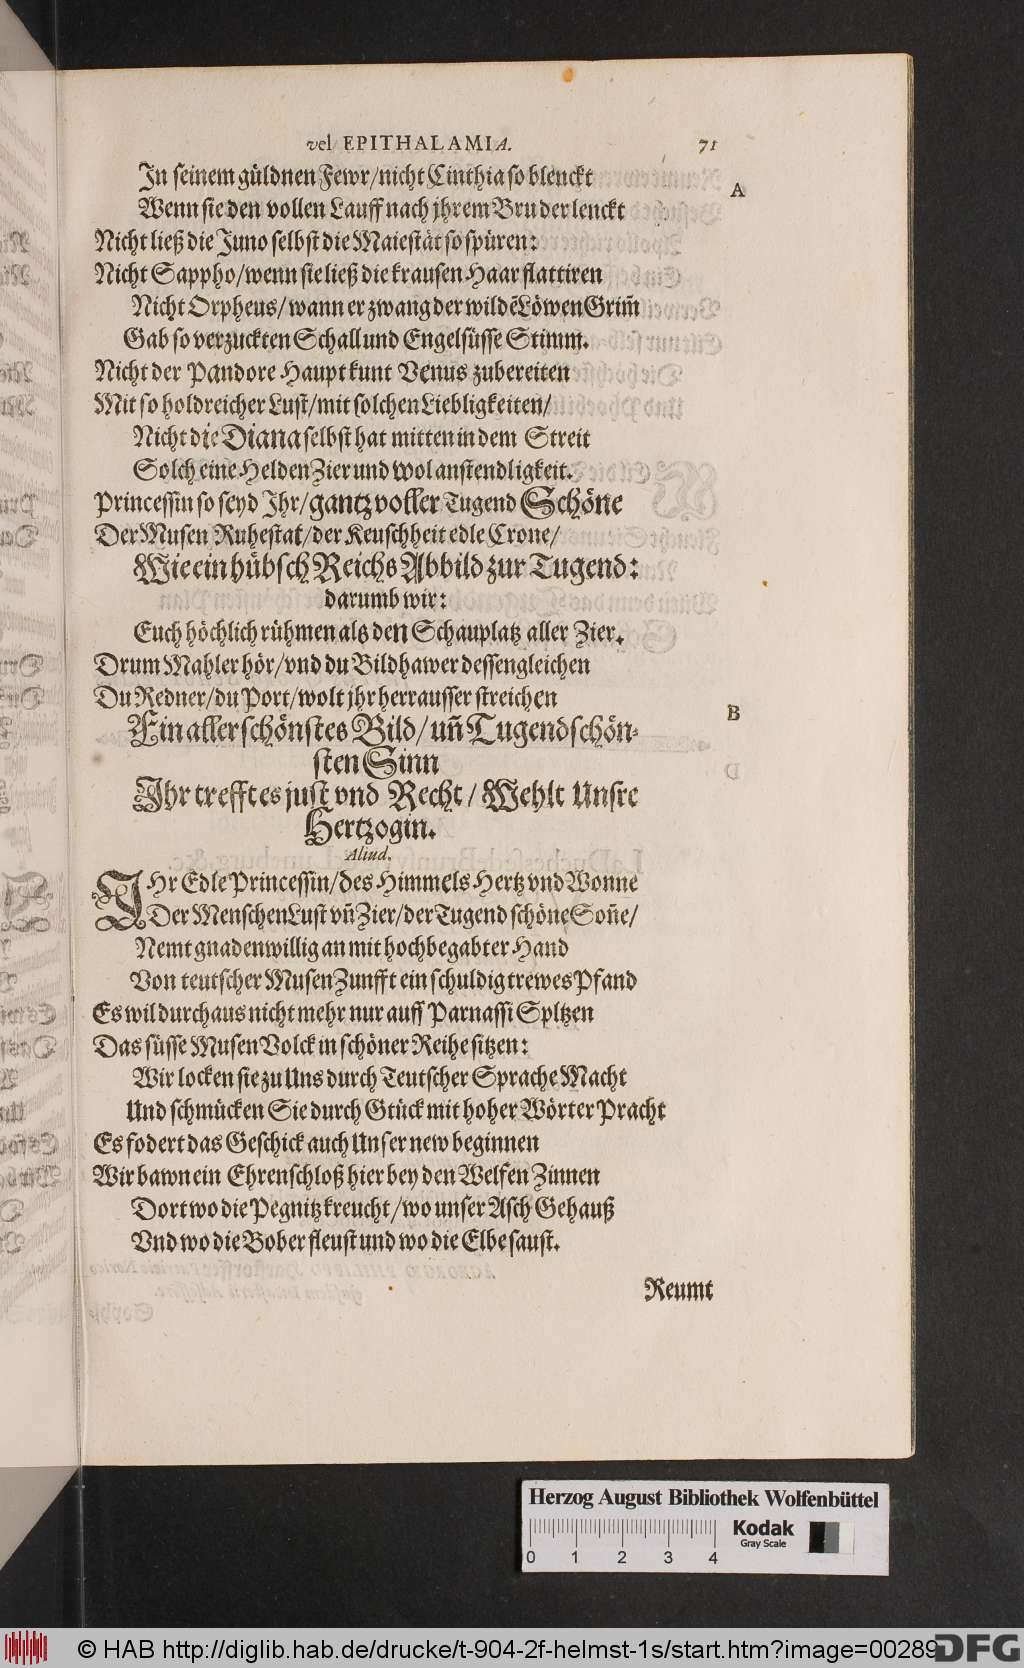 vel EPITHALAMIA. 71
In seinem güldnen Fewr/nicht Cinthia so blenckt
A
Wenn sie den vollen Lauff nach jhrem Bruder lenckt
Nicht ließ die Juno selbst die Maiestät so spüren:
Nicht Sappho/wenn sie ließ die krausen Haar flattiren
Nicht Orpheus/wann er zwang der wildẽ Löwen Grim̃
Gab so verzuckten Schall und Engelsüsse Stimm.
Nicht der Pandore Haupt kunt Venus zubereiten
Mit so holdreicher Lust/mit solchen Liebligkeiten/
Nicht die Diana selbst hat mitten in dem Streit
Solch eine Helden Zier und wolanstendligkeit.
Princessin so seyd Ihr/gantz voller Tugend Schöne
Der Musen Ruhestat/der Keuschheit edle Crone/
Wie ein hübsch Reichs Abbild zur Tugend:
darumb wir:
Euch höchlich rühmen als den Schauplatz aller Zier.
Drum Mahler hör/vnd du Bildhawer dessengleichen
Du Redner/du Port/wolt jhr herrausser streichen
B
Ein allerschönstes Bild/uñ Tugendschön-
sten Sinn
Ihr trefft es just vnd Recht/Wehlt Unsre
Hertzogin.
Aliud.
IHr Edle Princessin/des Himmels Hertz vnd Wonne
Der Menschen Lust vñ Zier/der Tugend schöne Soñe/
Nemt gnadenwillig an mit hochbegabter Hand
Von teutscher Musen Zunfft ein schuldig trewes Pfand
Es wil durchaus nicht mehr nur auff Parnassi Spltzen
Das süsse Musen Volck in schöner Reihe sitzen:
Wir locken sie zu Uns durch Teutscher Sprache Macht
Und schmücken Sie durch Gtück mit hoher Wörter Pracht
Es fodert das Geschick auch Unser new beginnen
Wir bawn ein Ehrenschloß hier bey den Welfen Zinnen
Dort wo die Pegnitz kreucht/wo unser Asch Gehauß
Vnd wo die Bober fleust und wo die Elbe saust.
Reumt
Herzog August Bibliothek Wolfenbüttel
Kodak
Gray Scale
0 1 2 3 4
© HAB http://diglib.hab.de/drucke/t-904-2f-helmst-1s/start.htm?image=00289
DFG